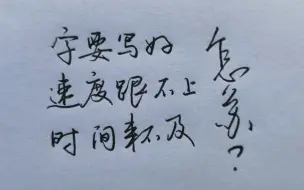 字要写好
速度跟不上
时间来不及
怎么办？